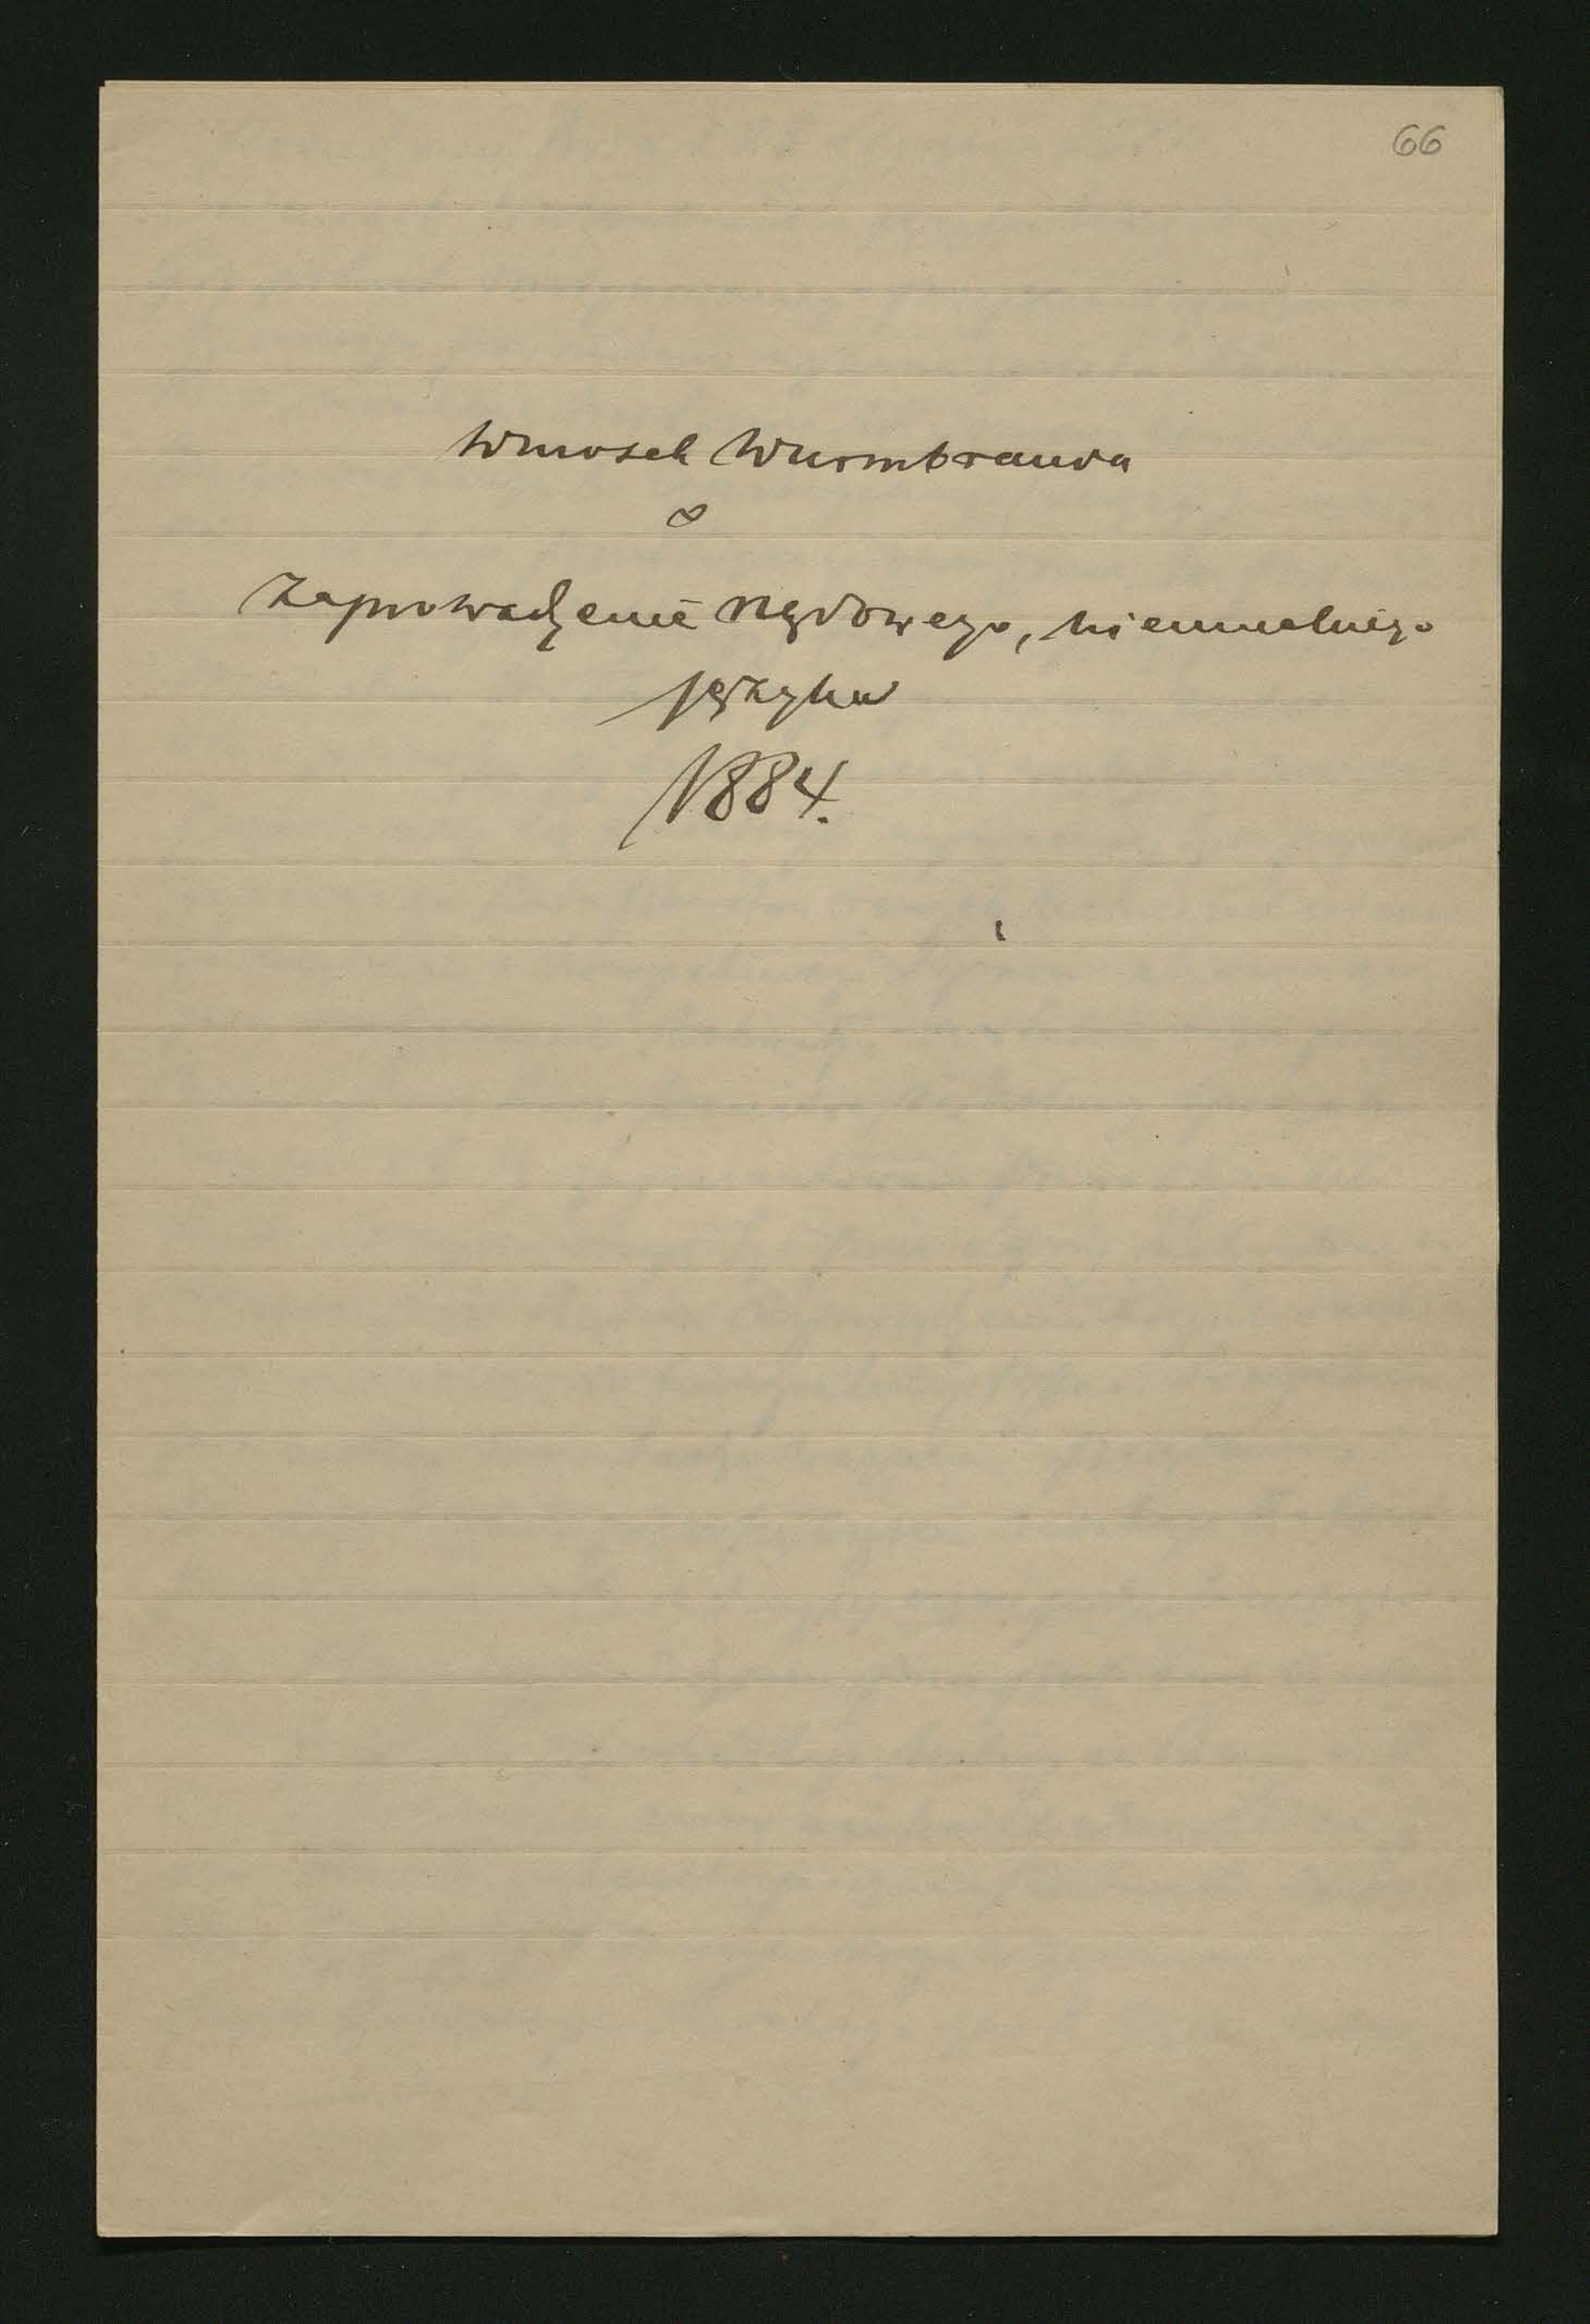 66
Wniosek Wurmbranda
o
Zaprowadzenie rządowego, niemieckiego
języka
1884.